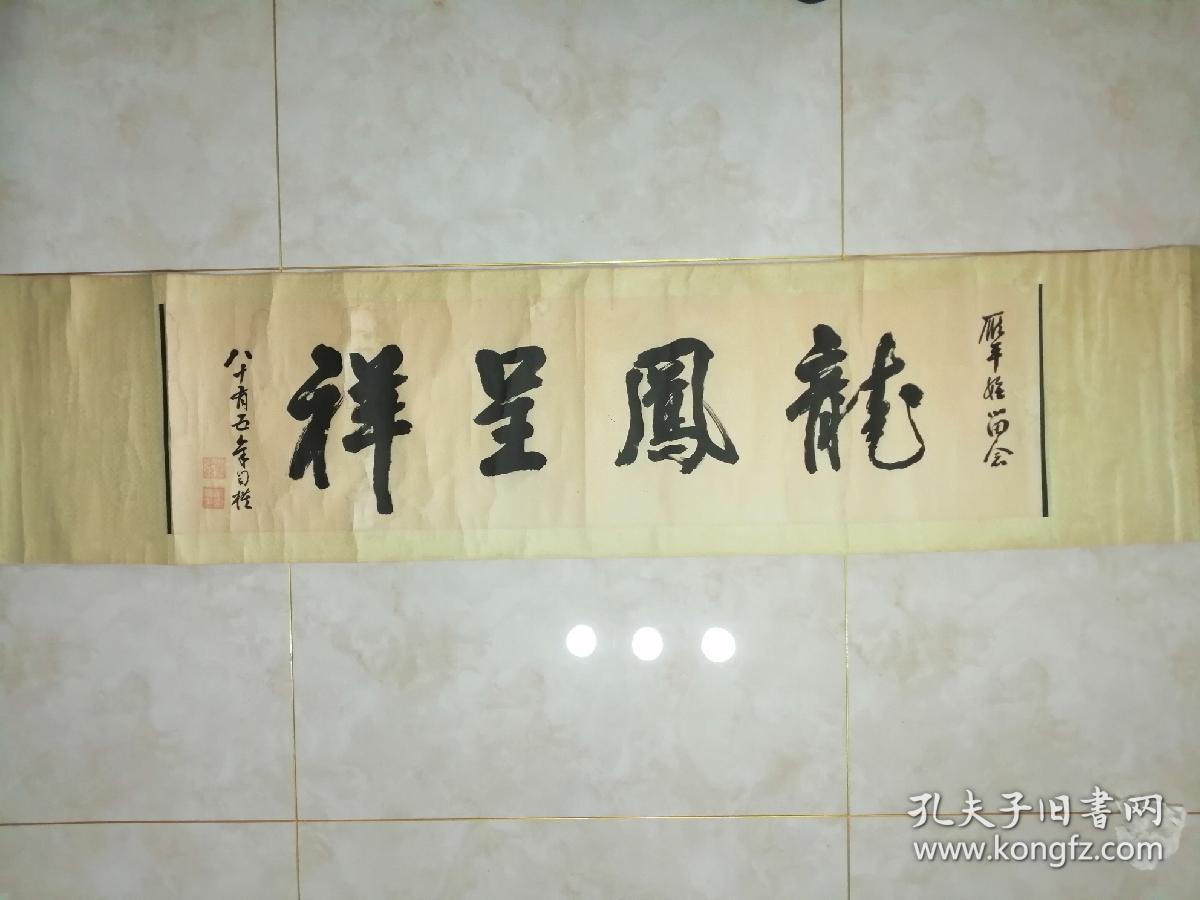 雁平姪留念
龍鳳呈祥
八十有五年
孔夫子旧书网
www.kongfz.com